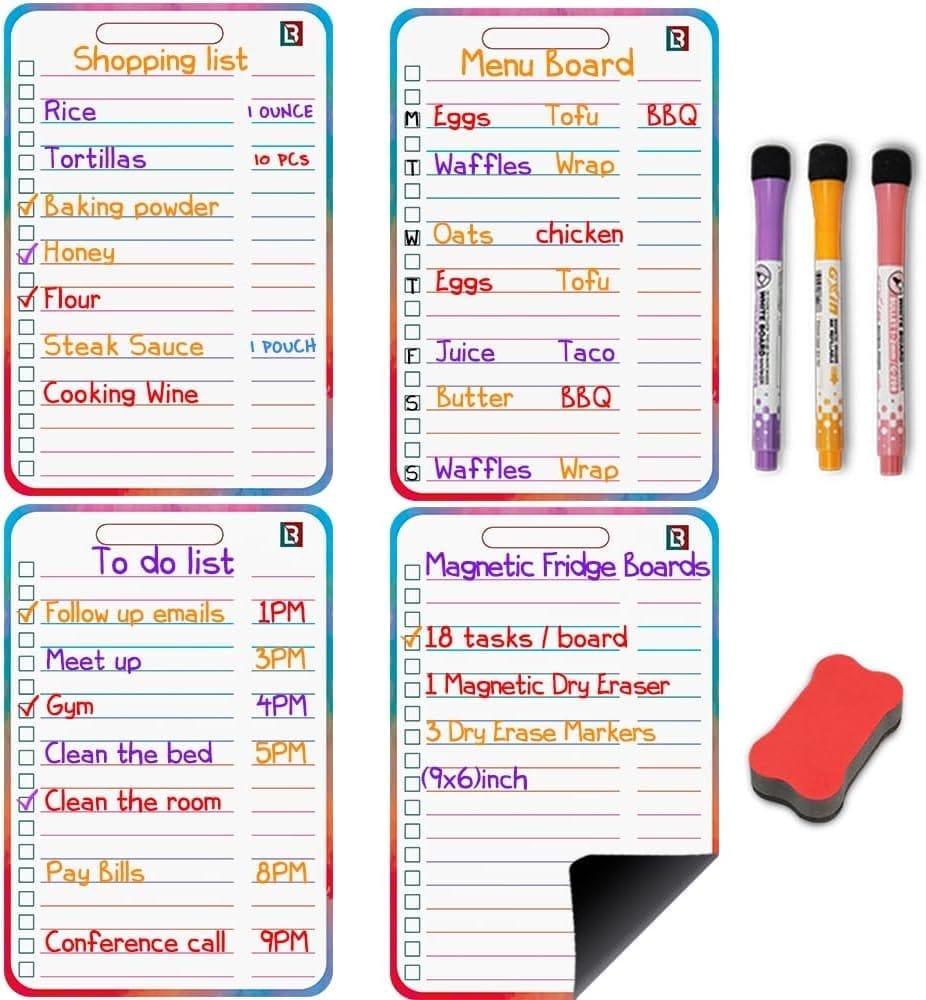 Shopping list
Rice 1 OUNCE
Tortillas 10 PCs
Baking powder
Honey
Flour
Steak Sauce 1 POUCH
Cooking Wine
Menu Board
M Eggs Tofu BBQ
T Waffles Wrap
W Oats chicken
T Eggs Tofu
F Juice Taco
S Butter BBQ
S Waffles Wrap
To do list
Follow up emails 1PM
Meet up 3PM
Gym 4PM
Clean the bed 5PM
Clean the room
Pay Bills 8PM
Conference call 9PM
Magnetic Fridge Boards
18 tasks / board
1 Magnetic Dry Eraser
3 Dry Erase Markers
(9x6)inch
WHITE BOARD
GXIN
WHITE BOARD